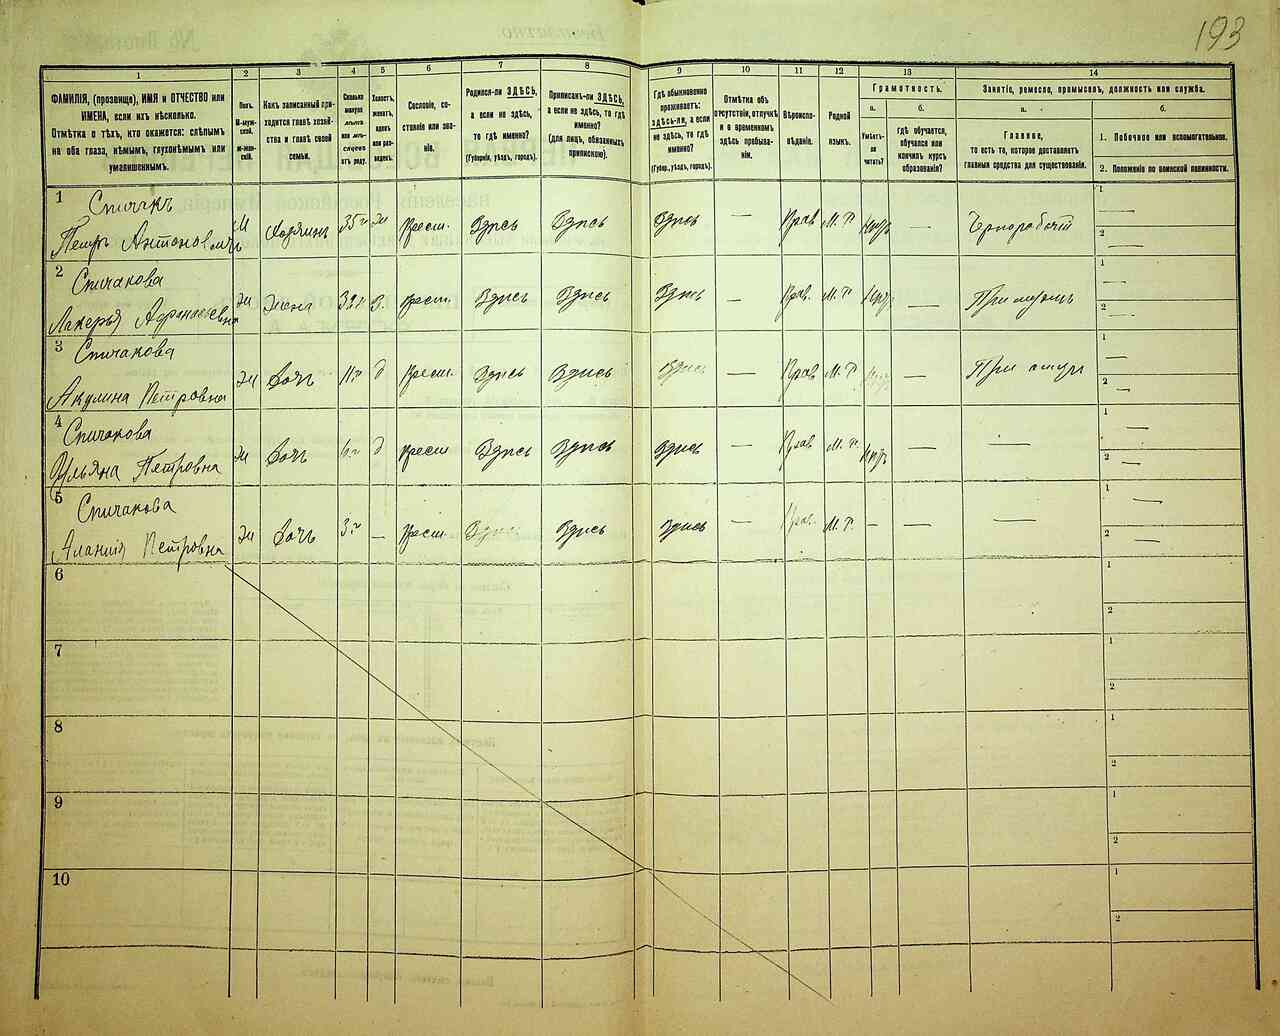 193
1
2
3
4
5
6
7
8
9
10
11
12
13
14
ФАМИЛІЯ, (прозвище), ИМЯ и ОТЧЕСТВО или
ИМЕНА, если ихъ нѣсколько.
Отмѣтка о тѣхъ, кто окажется: слѣпымъ
на оба глаза, нѣмымъ, глухонѣмымъ или
умалишеннымъ.
Полъ.
М-муж-
ской.
Ж-жен-
скій.
Какъ записанный при-
ходится главѣ хозяй-
ства и главѣ своей
семьи.
Сколько
минуло
лѣтъ
или мѣ-
сяцевъ
отъ роду.
Холостъ,
женатъ,
вдовъ
или раз-
веденъ.
Сословіе, со-
стояніе или зва-
ніе.
Родился-ли ЗДѢСЬ,
а если не здѣсь,
то гдѣ именно?
(Губернія, уѣздъ, городъ).
Приписанъ-ли ЗДѢСЬ,
а если не здѣсь, то гдѣ
именно?
(для лицъ, обязанныхъ
припискою).
Гдѣ обыкновенно
проживаетъ:
здѣсь-ли, а если
не здѣсь, то гдѣ
именно?
(Губер., уѣздъ, городъ).
Отмѣтка объ
отсутствіи, отлучкѣ
и о временномъ
здѣсь пребыва-
ніи.
Вѣроиспо-
вѣданіе.
Родной
языкъ.
Грамотность.
а.
Умѣетъ-
ли
читать?
б.
гдѣ обучается,
обучался или
кончилъ курсъ
образованія?
Занятіе, ремесло, промыселъ, должность или служба.
а.
Главное,
то есть то, которое доставляетъ
главныя средства для существованія.
б.
1. Побочное или вспомогательное.
2. Положеніе по воинской повинности.
1 Спичакъ
Петръ Антоновичъ М Хозяинъ 35 г ж Крест. Здѣсь Здѣсь Здѣсь — Прав М. Р — Чернорабочій
1 —
2 —
2 Спичакова
Лакерья Афанасьевна ж жена 32 г З. Крест. Здѣсь Здѣсь Здѣсь — Прав. М. Р — При мужѣ
1 —
2 —
3 Спичакова
Акулина Петровна ж Дочь 11 г д Крест. Здѣсь Здѣсь Здѣсь — Прав М. Р — При отцѣ
1 —
2 —
4 Спичакова
Ульяна Петровна ж Дочь 6 г д крест Здѣсь Здѣсь Здѣсь — Прав М. Р — —
1 —
2 —
5 Спичакова
Петровна ж Дочь 3 г — Крест. Здѣсь Здѣсь Здѣсь — Прав. М. Р — — —
1 —
2 —
6
1
2
7
1
2
8
1
2
9
1
2
10
1
2